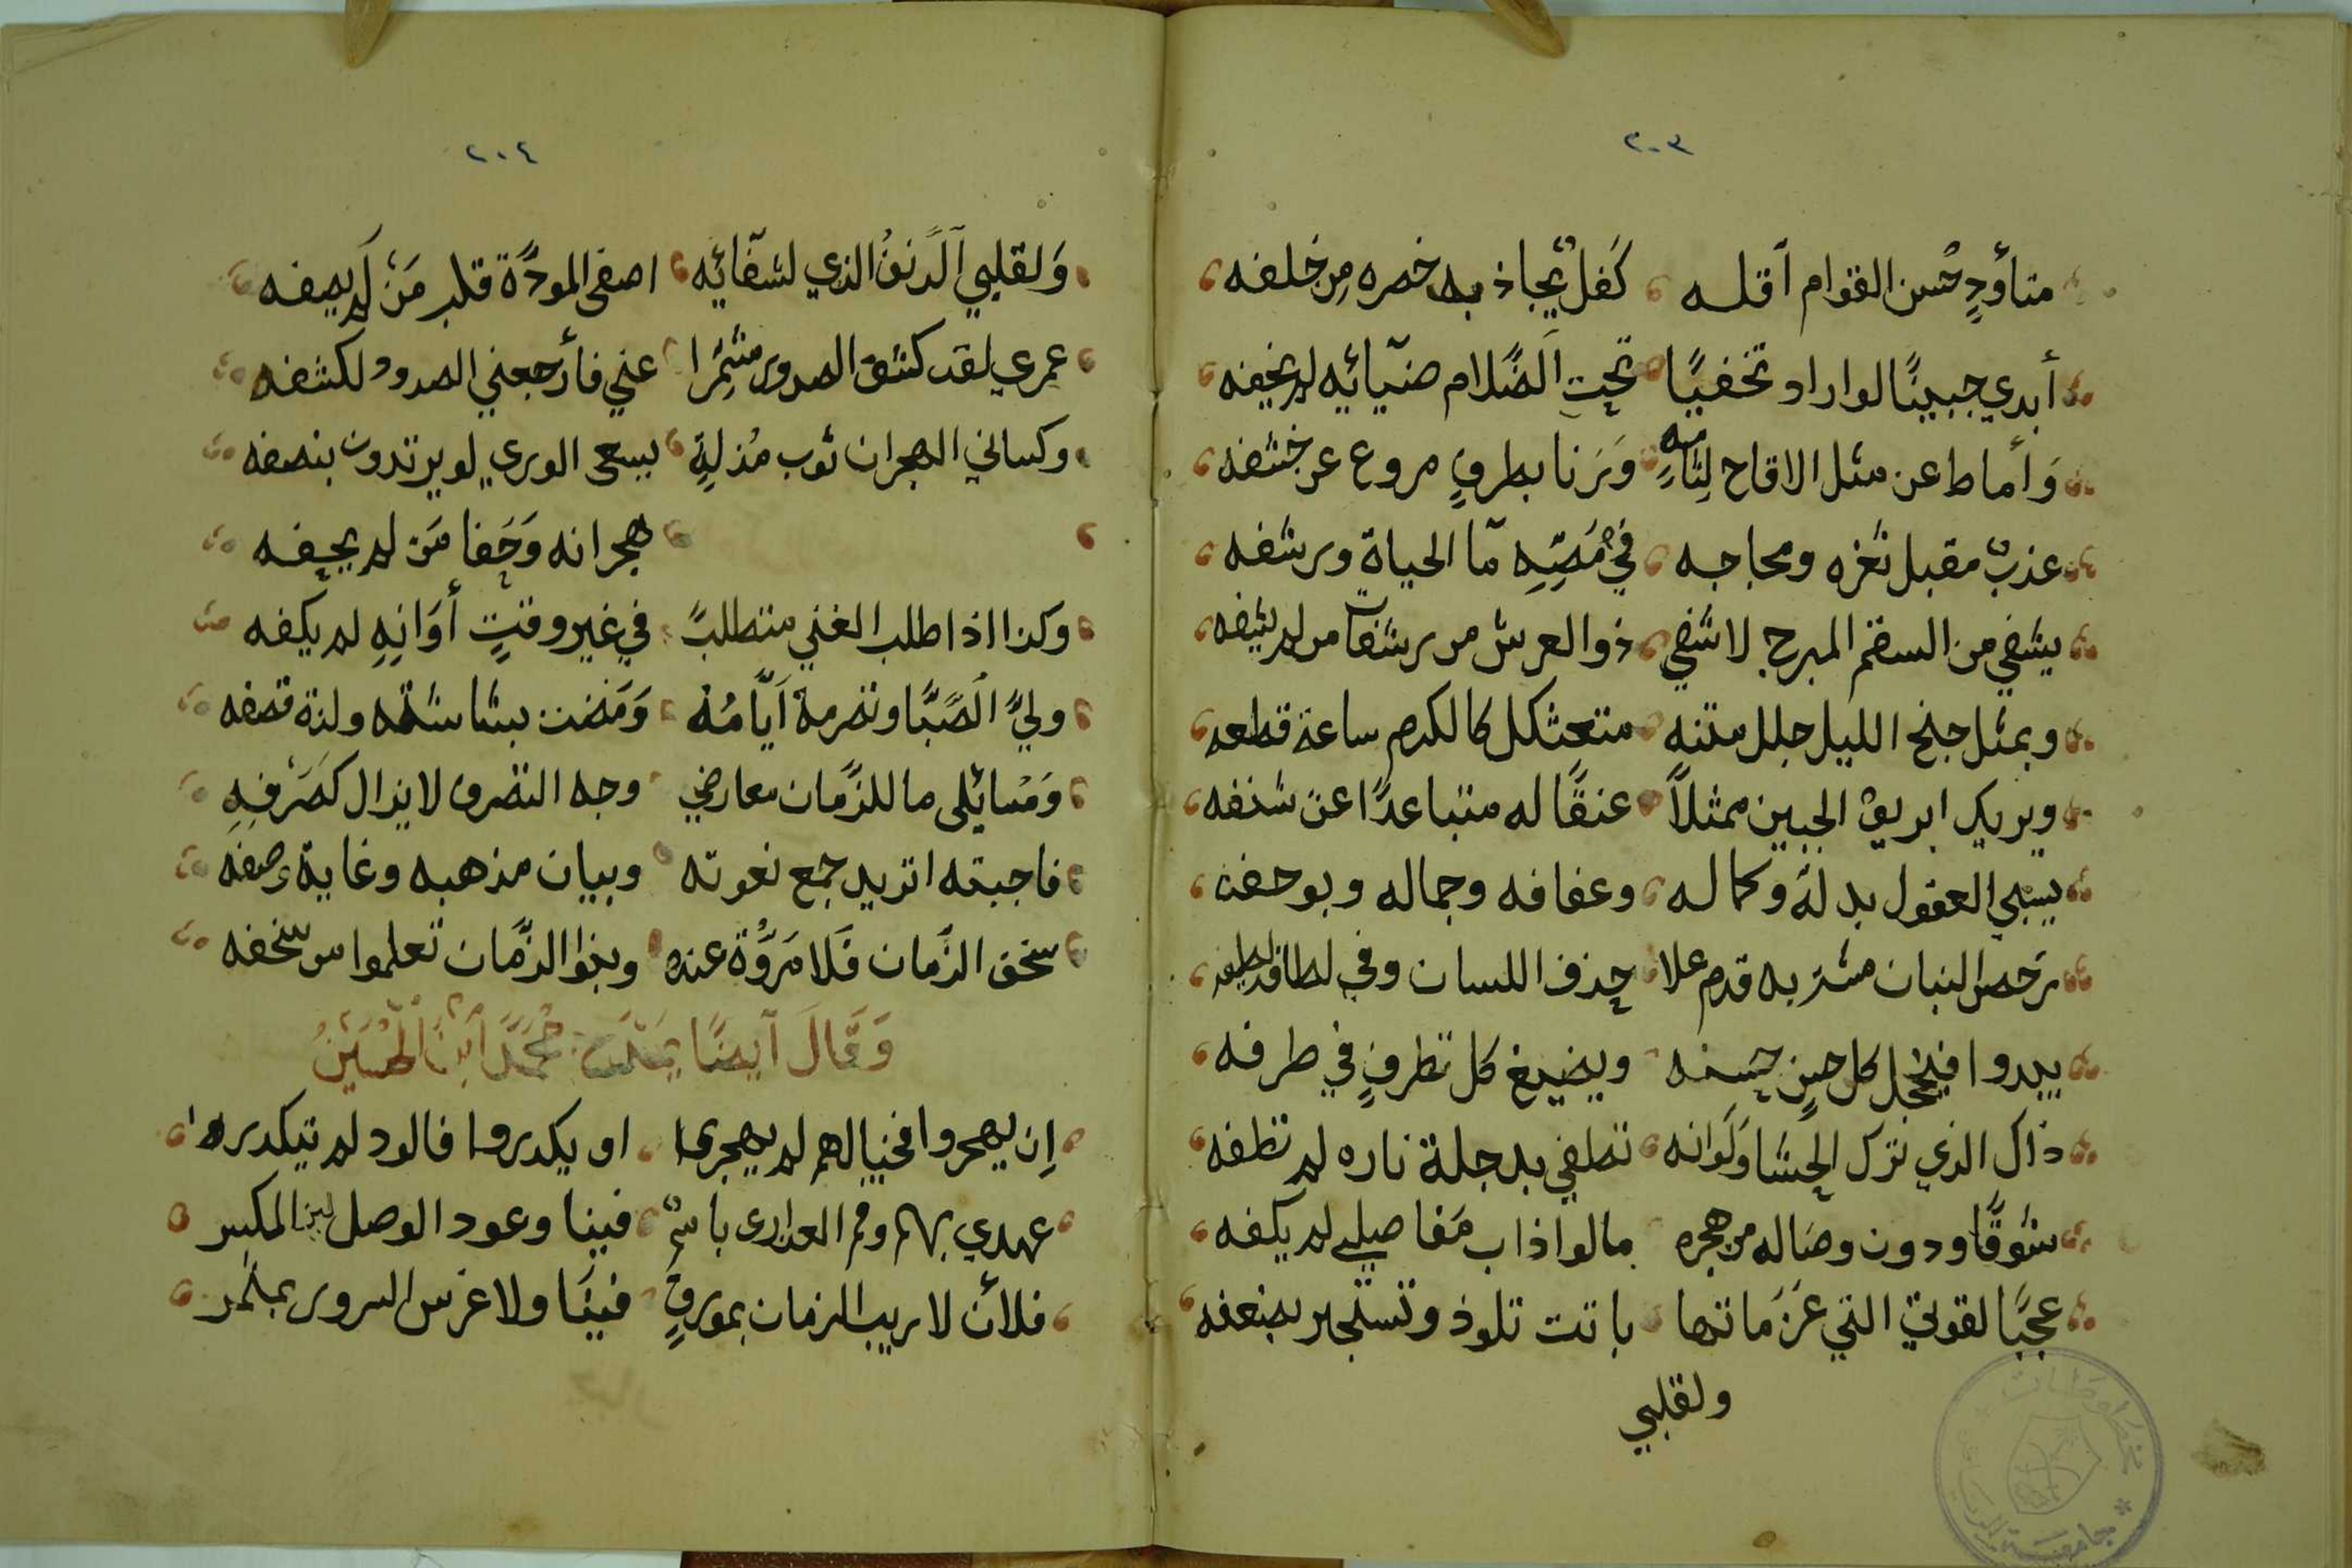 ٢٠٣
متأودٍ حُسن القوام أقله كَفلٌ يُجاذبه خصره مِن خلفه
أبدي جبينًا لو اراد تخفيًا تحت الضلام ضيّائِه لم يخفه
وَأماط عن مثل الاقاح لِثامِه وَرَنا بطرفٍ مروع عن خشفه
عذبٌ مقبل ثغره ومجاجه في مَصِّهِ مآ الحياةِ ورشفه
يشفي من السقم المبرح لا شفي ذو العرش من رشفات من لم يشفه
وبمثل جنح الليل جلل متنه متعثكل كالكرم ساعة قطعه
ويريك ابريق الجبين ممثلاً عنقًا له متباعدًا عن شنفه
يسبي العقول بدله وكماله وعفافه وجماله وبوحفه
رخص البنان مشتر به قدم علا حذف اللسان وفي لطافه لطفه
يبدوا فيخجل كل حينٍ حسنه ويضيع كل تطرفٍ في طرفه
ذاك الذي ترك الحشا وَلَوانه تطفي بدجلة ناره لم تطفه
شوقًا ودون وصاله من هجره ما لو اذاب مَفاصيلي لم يكفه
عجبًا لقوتي التي عَزَماتها باتت تلوذ وتستجير بضعفه
ولقلبي
٢٠٤
وَلقلبي الدَنفُ الذي لشفآئِه اصفى المودّة قلب مَنْ لَم يصفه
عمري لقد كشف الصدور مشمِّرا عني فأرجعني الصدود لكشفه
وكساني الهجران ثوب مُذلةٍ يسعى الوري لو يرتدون بنصفه
هجرانه وَجَفا مَن لم يجفه
وكذا اذا طلب الغني متطلبً في غير وقتٍ أوَانِهِ لم يكفه
وليَّ الصِّبا وتصرمة أيّامُهُ وَمَضت بشاشته ولذة قصفه
وَمسايِلى ما للزّمان معارضي وجه التصرف لا يزال كصَرْفِهِ
فاجبته اتريد جمع نعوته وبيان مذهبه وغاية وصفه
سخف الزّمان فَلا مَروَّة عنده وبنوا الزّمان تعلموا من سخفه
وَقَالَ أيضًا يَمْدَح مُحَمَّد ابْن الْحُسَيْنُ
اِن يهجروا فخيالهم لم يهجرا او يكدروا فالود لم تيكدرا
عهدي بهم وفم العذارى باسمٌ فينا وعود الوصل لين المكسر
فلأن لا ريب الزمان بمورقٍ فينَا ولا غرس السرور بمثمر